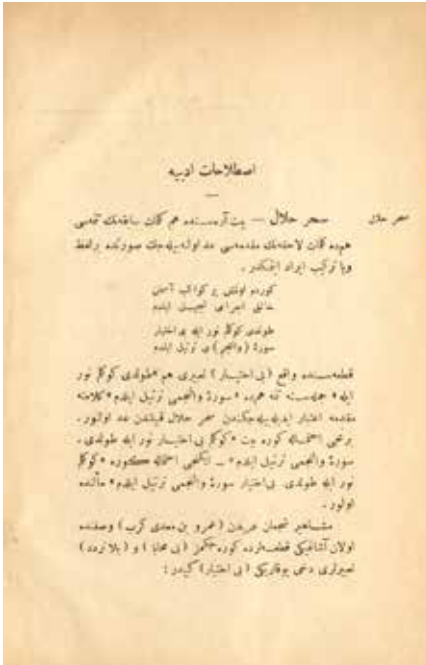 اصطلاحات ادبیه
سحر حلال
سحر حلال — بیت آره‌سنده هم كلام سابقه‌نك تتمه‌سی
هم‌ده كلام لاحقه‌نك مقدمه‌سی عد اوله‌بیله‌جك صورتده بر لفظ
ویا تركیب ایراد ایتمكدر .
كوردم اولمش پر كواكب آسمان
خالق اجرامی تبجیل ایلدم
طولدی كوكلم نور ایله بی اختیار
سورۀ (والنجم) ی ترتیل ایلدم
قطعه‌سنده واقع (بی اختیار) تعبیری هم «طولدی كوكلم نور
ایله» جمله‌سنه تتمه هم‌ده «سورۀ والنجمی ترتیل ایلدم» كلامنه
مقدمه اعتبار ایدیله‌بیله‌جكندن سحر حلال قبیلندن عد اولنور .
برنجی احتماله كوره بیت «كوكلم بی اختیار نور ایله طولدی .
سورۀ والنجمی ترتیل ایلدم» — ایكنجی احتماله كوره «كوكلم
نور ایله طولدی . بی اختیار سورۀ والنجمی ترتیل ایلدم» مآلنده
اولور .
مشاهیر شجعان عربدن (عمرو بن معدی كرب) وصفنده
اولان آشاغیكی قطعه‌لرده كوره‌جكمز (بی محابا) و (بلا تردد)
تعبیرلری دخی یوقاریكی (بی اختیار) كبیدر :